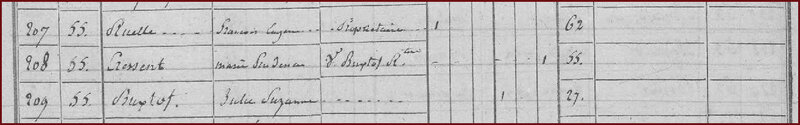 207 55. Ruelle François Eugène Propriétaire 1 62
208 55. Cressent marie Prudence Vve Buptot R.tière 1 55.
209 55. Buptot. Julie Suzanne 1 27.